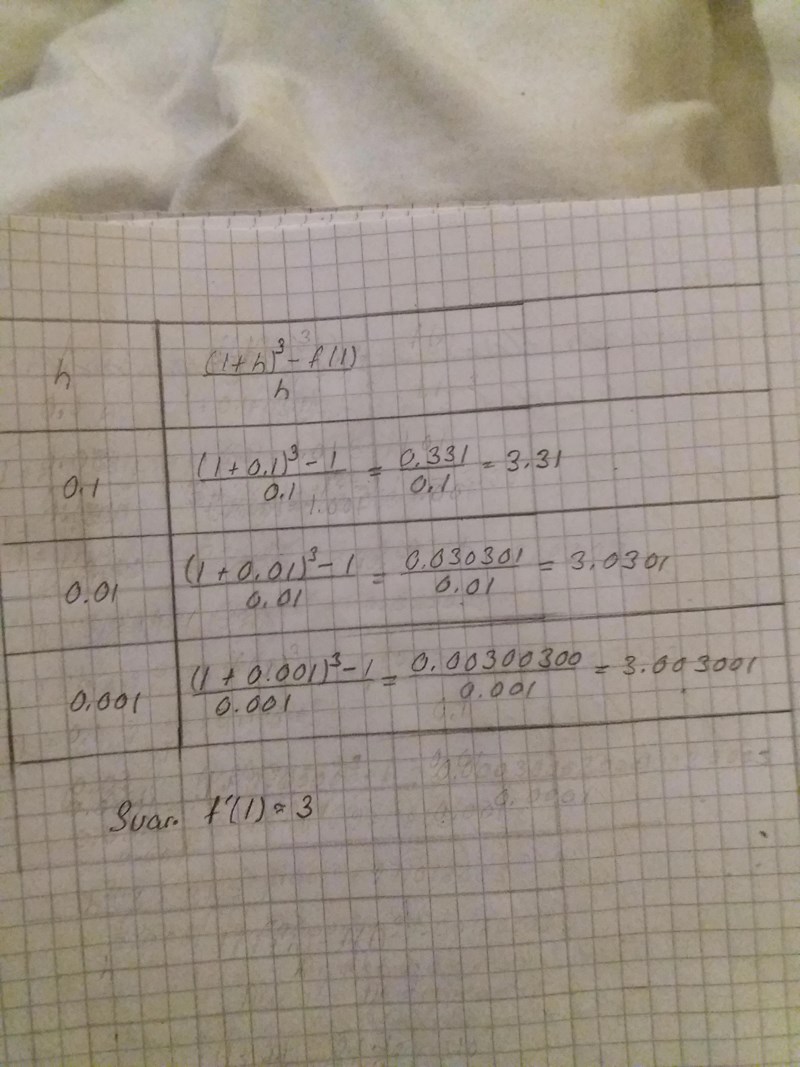 h (1+h)³ - f(1) / h
0.1 (1+0.1)³ - 1 / 0.1 = 0.331 / 0.1 = 3.31
0.01 (1+0.01)³ - 1 / 0.01 = 0.030301 / 0.01 = 3.0301
0.001 (1+0.001)³ - 1 / 0.001 = 0.00300300 / 0.001 = 3.003001
Svar. f'(1) ≈ 3